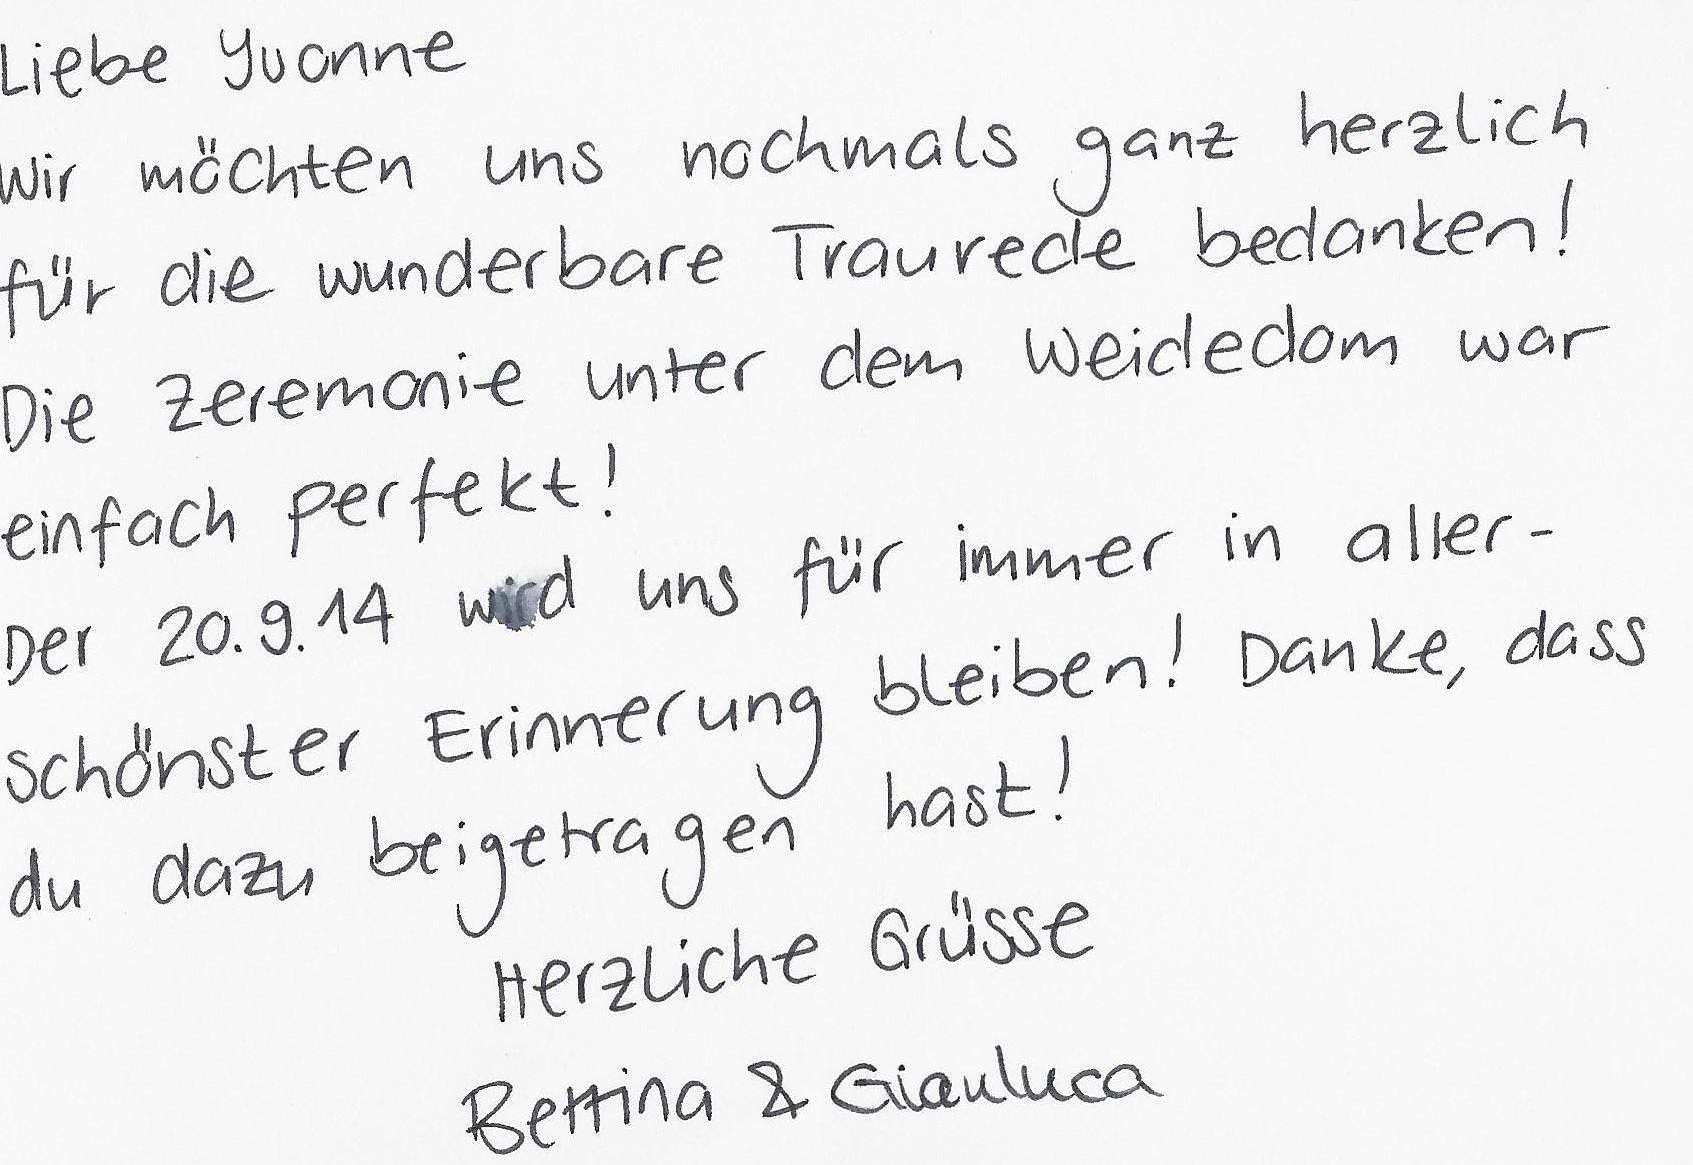 Liebe Yvonne
Wir möchten uns nochmals ganz herzlich
für die wunderbare Traurede bedanken!
Die Zeremonie unter dem Weidedom war
einfach perfekt!
Der 20.9.14 wird uns für immer in aller-
schönster Erinnerung bleiben! Danke, dass
du dazu beigetragen hast!
Herzliche Grüsse
Bettina & Gianluca